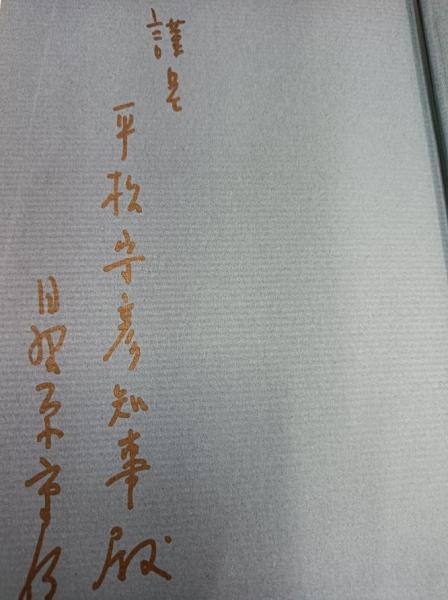 謹呈
平松守彦知事殿
日野原重明